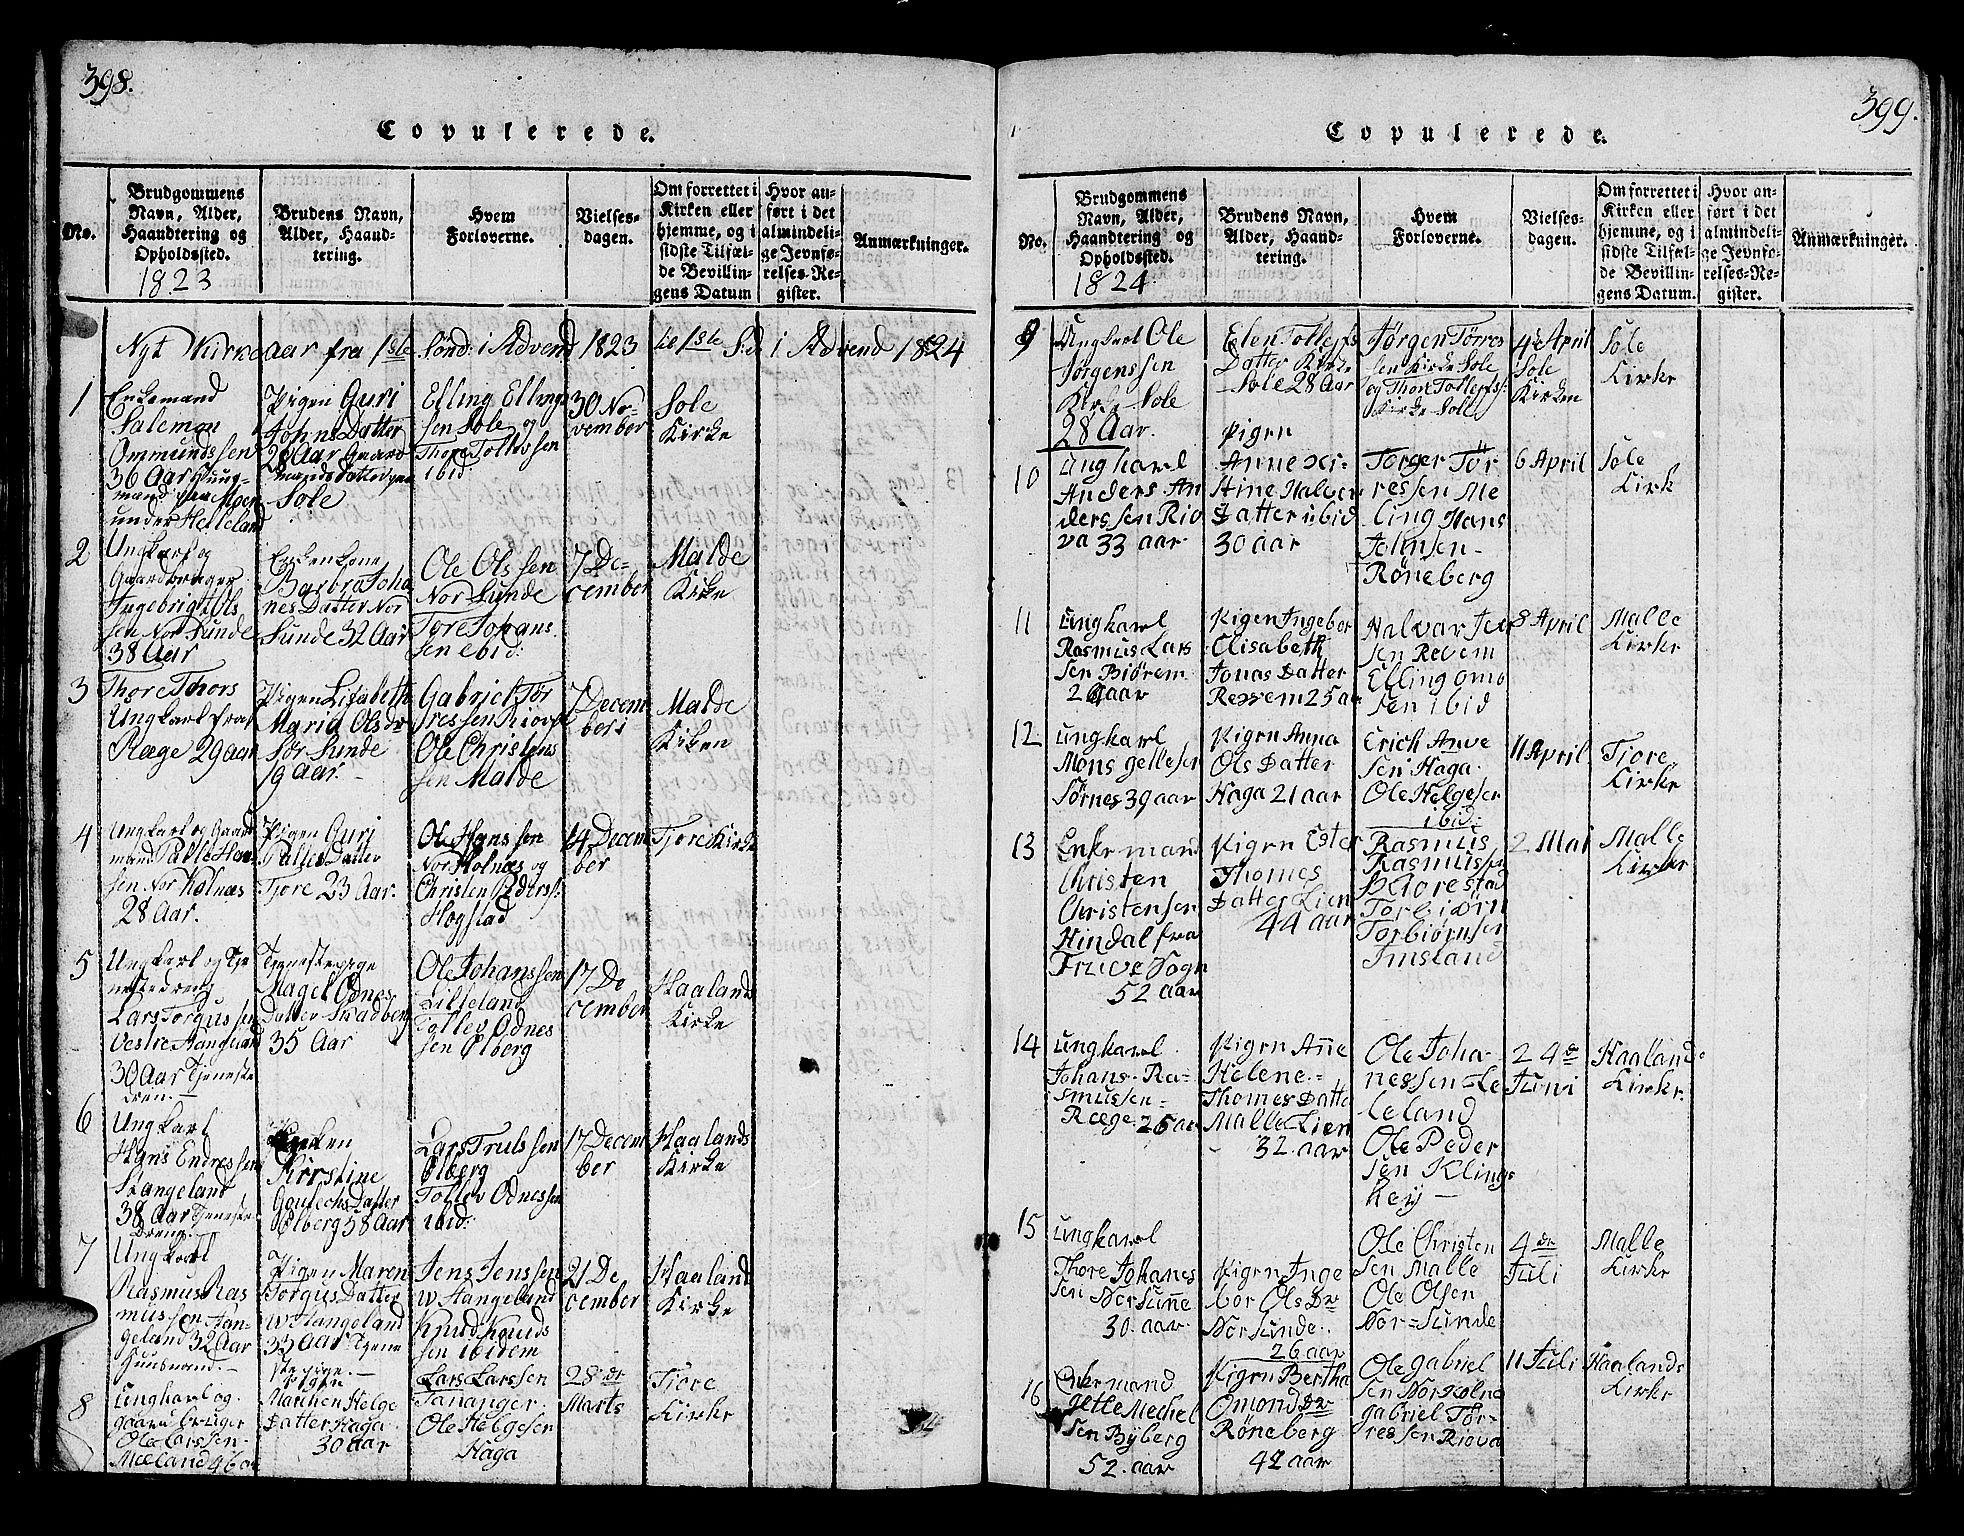 398.
Copulerede.
No.
Brudgommens
Navn, Alder,
Haandtering og
Opholdssted.
1823
Brudens Navn,
Alder, Haand-
tering.
Hvem
Forloverne.
Vielses-
dagen.
Om forrettet i
Kirken eller
hjemme, og i
sidste Tilfæl-
de Bevillin-
gens Datum
Hvor an-
ført i det
almindeli-
ge Jevnfø-
relses-Re-
gister.
Anmærkninger.
Nyt Kirkeaar fra 1ste Sønd: i Advend 1823 til 1ste Sid i Advend 1824
1
Enkemand
Salemon
Ommundssen
36 Aar
mand fra
under Helleland
Pigen Guri
Johns Datter
28 Aar Gaard
mands Datter paa
Sole
Elling Ellings
sen Sole og
Thore Tollevssen
ibid
30 No-
vember
Sole
Kirke
2
Ungkarl og
Gaardbruger
Ingebrigt Ols
sen Nor Sunde
38 Aar
Enken Lene
Barbra Joha
nes Datter Nor
Sunde 32 Aar
Ole Olssen
Nor Sunde
Tore Johans
sen ibid:
7 De-
cember
Malde
Kirke
3
Thore Thors
Ungkarl fra
Ræge 29 Aar
Pigen Lisabeth
Maria Olsdr
Sør Sunde
19 Aar. -
Gabriel Tør
ressen Riova
Ole Christens
sen Malde
7 Decem
beri
Malde
Kiken
4
Ungkarl og Gaard
mand Palle Han-
sen Nor Kolnæs
28 Aar.
Pigen Guri
Palles Datter
Tjore 23 Aar.
Ole Hanssen
Nor Kolnæs og
Christen Pederss:
Hogstad
14 Decem
ber
Tjore Kirke
5
Ungkarl og Tje
nestedreng
Lars Torgussen
Vestre Hangeland
30 Aar Tjeneste
dren. -
Tjenestepige
Magel Odnes
Datter Skadberg
35 Aar
Ole Johanssen
Lilleland
Tollev Odnes
sen Ølberg
17 De
cember
Haalands
Kirke
6
Ungkarl
Hans Endressen
Stangeland
38 Aar Tjeneste
Dreng. -
Enken
Kirstine
Goutechs Datter
Ølberg 38 Aar
Lars Trulssen
Ølberg
Tollev Odnessen
ibid:
17 Decem
ber
Haalands
Kirke
7
Ungkarl
Rasmus Ras
mussen Han-
geland 32 Aar
Huusmand. -
Pigen Maren
Torgus Datter
w Hangeland
33 Aar Tjene
ste pige. -
Jens Jenssen
w Hangeland
Knud Knuds
sen ibidem
21 De
cember
Haaland
Kirke
8
Ungkarl og
gaard bruger
Ole Larssen
Meeland 46 aar
Pigen
Marthen Helge
Datter Haga
30 aar
Lars Larssen
Tananger.
Ole Helgesen
Haga
28de
Marts
Tiore
Kirke
399.
Copulerede.
No.
Brudgommens
Navn, Alder,
Haandtering og
Opholdssted.
1824
Brudens Navn,
Alder, Haand-
tering.
Hvem
Forloverne.
Vielses-
dagen.
Om forrettet i
Kirken eller
hjemme, og i
sidste Tilfæl-
de Bevillin-
gens Datum.
Hvor an-
ført i det
almindeli-
ge Jevnfø-
relses-Re-
gister.
Anmærkninger.
9
Ungkarl Ole
Jørgenssen
Kirke Sole
28 Aar.
Elen Tollefs
Datter Kirke
Sole 28 Aar
Jørgen Tørres
sen Kirke Sole
og Thore Tollefs:
Kirke Sole
4de April
Sole
Kirken
Sole
Kirke
10
Ungkarl
Anders An
derssen Rio
va 33 aar.
Pigen
Anne Ki-
stine Halver
Datter ibid
30 aar
Torger Tør
ressen Me
ling Hans
Johnsen -
Röneberg
6 April
Sole
Kirk
11
Ungkarl
Rasmus Lars
sen Biörem
26 aar
Pigen Ingebor
Elisabeth
Jonas Datter
Revem 25 aar
Halvar Iver
sen Revem
Elling Omo
sen ibid
8 April
Malle
Kirke
12
Ungkarl
Mons gellesen
Sørnes 39 aar
Pigen Anna
Ols Datter
Haga 21 aar
Erich Anve
sen Haga.
Ole Helgesen
ibid:
11 April
Tjore
Kirke
13
Enkemand
Christen
Christensen
Hindal fra
Sogn
52 aar
Pigen Ester
Thomes
Datter Lien
44 aar
Rasmus
Rasmussen
Aarestad
Torbiørn
Torbiørnsen
Imsland
2 Mai
Malle
Kirke
14
Ungkarl.
Johans Ra-
smussen =
Ræge 26 aar
Pigen Anne
Helene =
Thomes Datte
Malle Lien
32. aar
Ole Joha-
nessen Le
leland
Ole Peder
sen Klings
hey -
24de
Juni
Haaland
Kirke.
15
Ungkarl
Thore Johanes
sen Norsunne
30. aar
Pigen Inge
bor Ols Dr
Norsunde.
26 aar
Ole Christen
sen Malle
Ole Olsen
Nor = Sunde
4de
Juli
Malle
Kirke
16
Enkemand
Jelle Mechel
sen Byberg
52. aar
Pigen Bertha
Omond Dr
Röneberg
42 aar
Ole Gabriel
sen Nor Kolne
Gabriel Tør-
ressen Riova
11 Juli
Haalands
Kirke